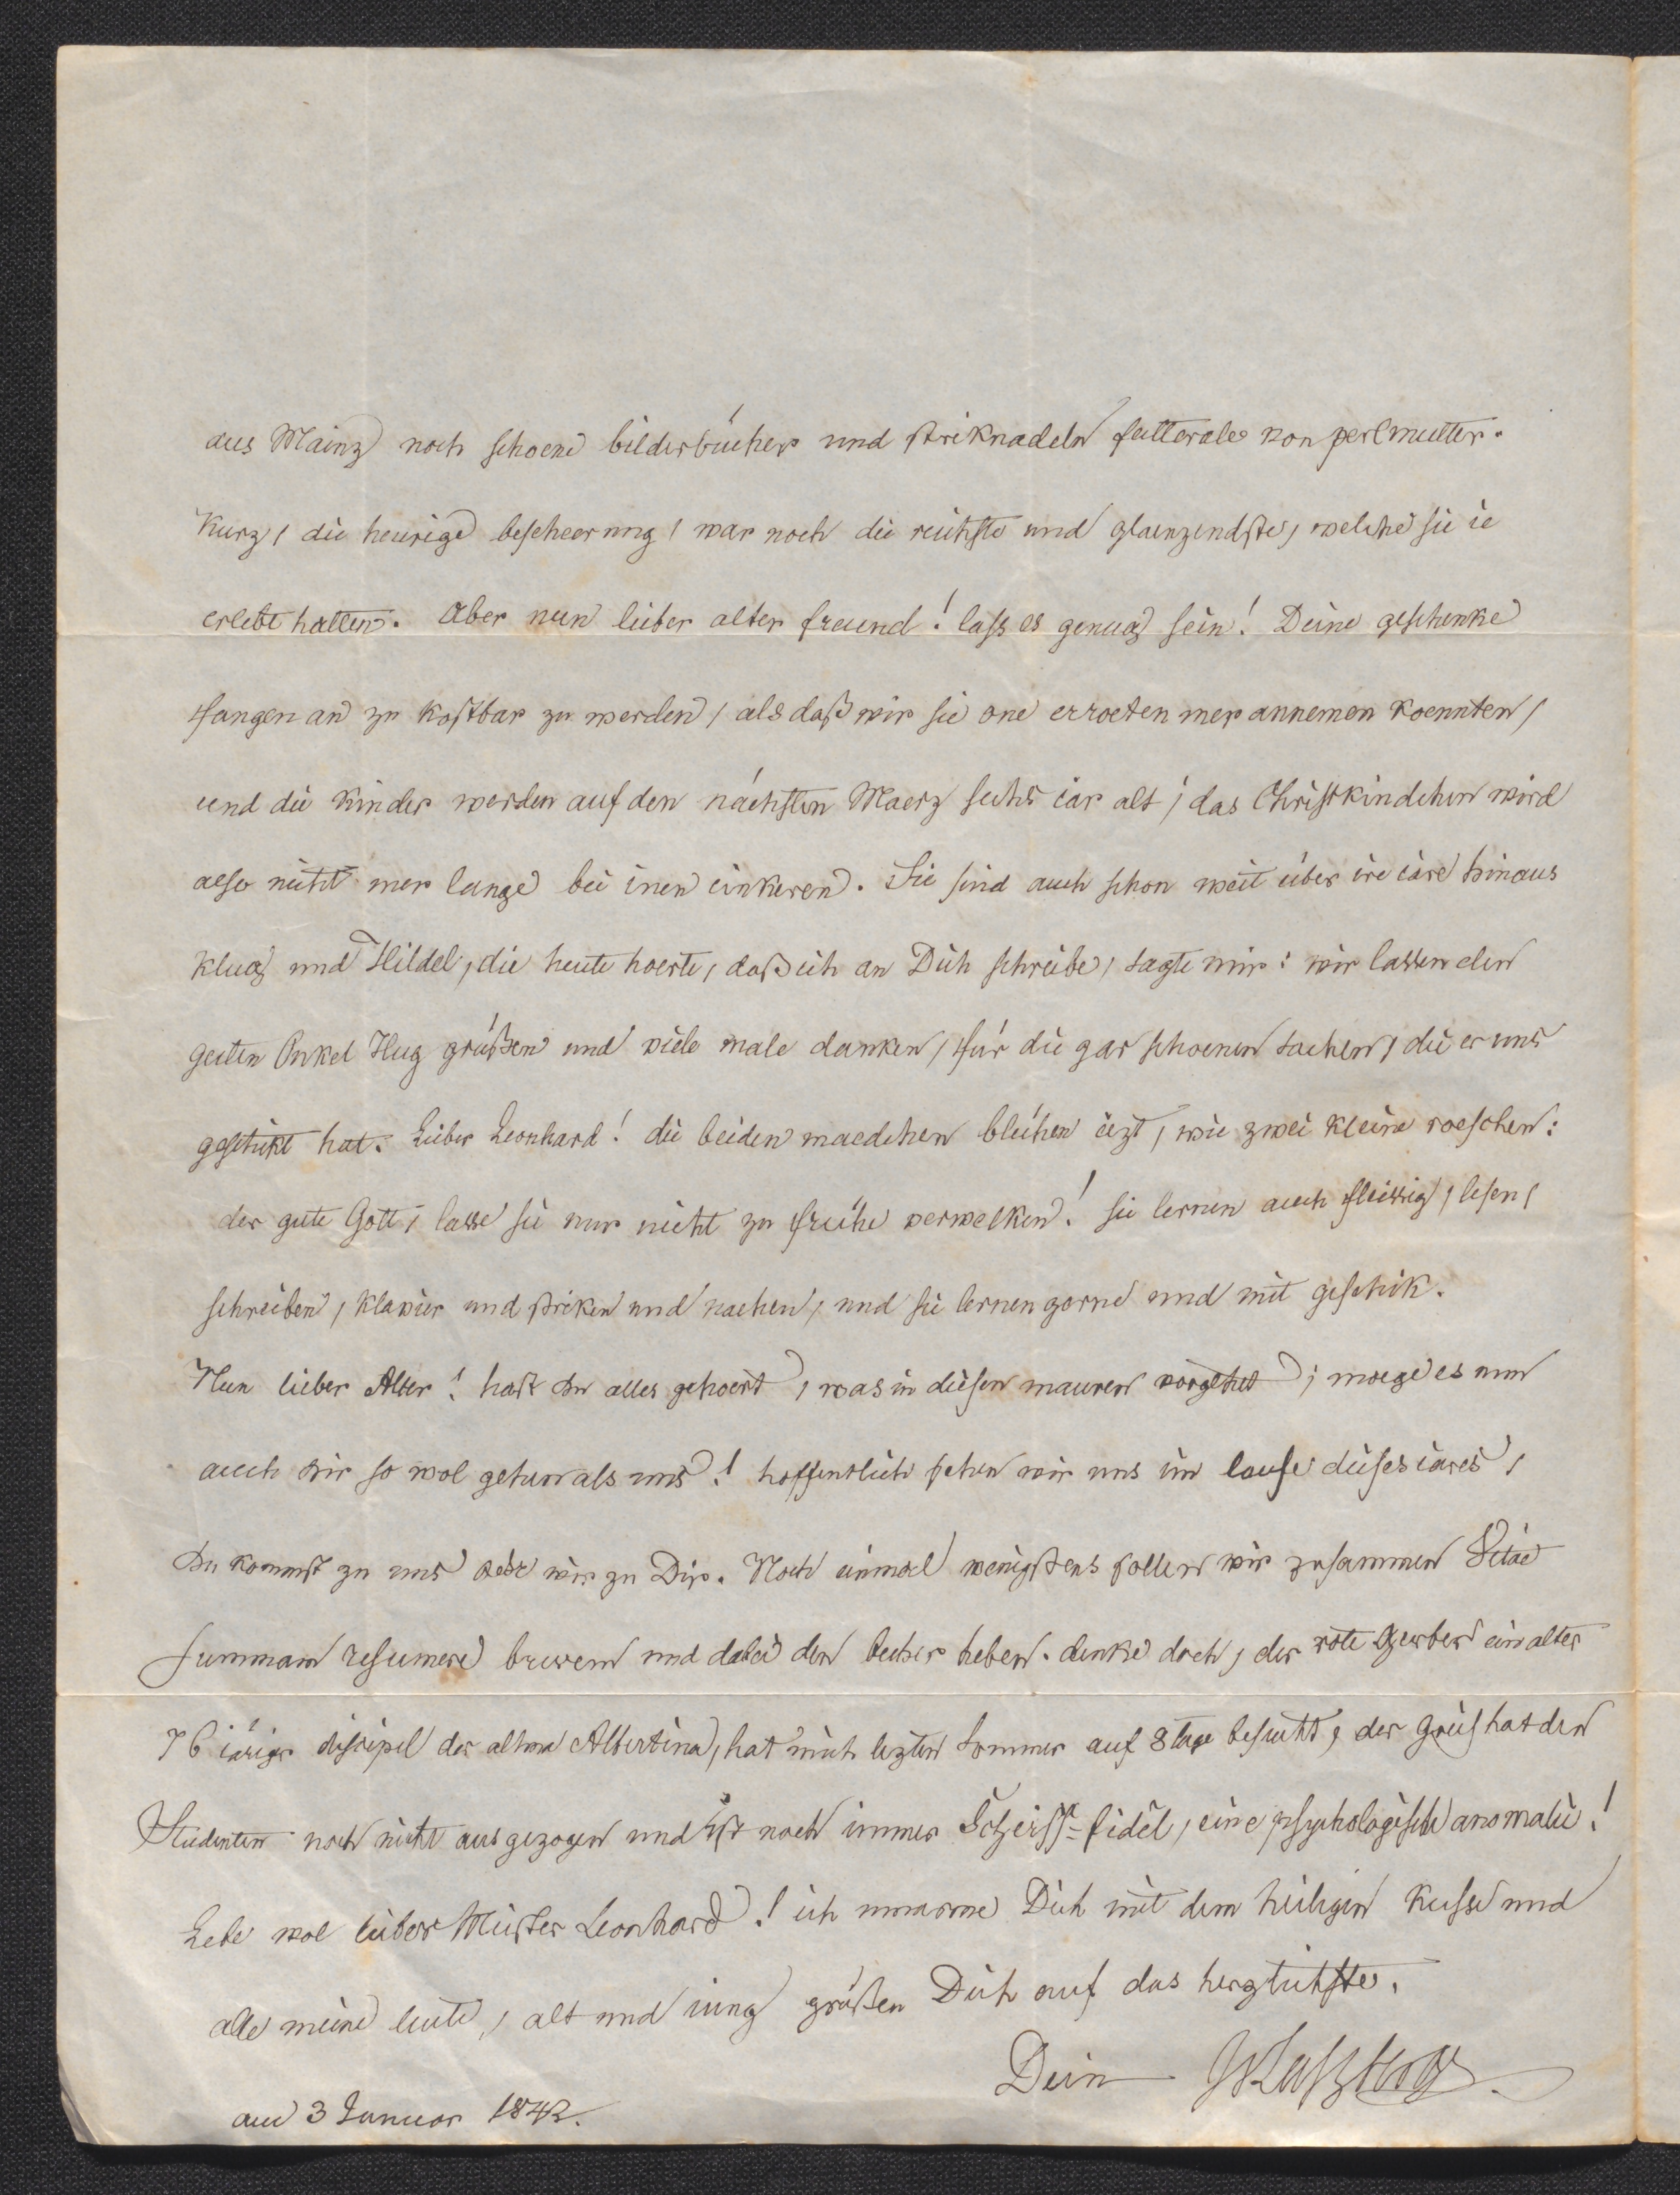 aus Mainz noch schoene bilderbücher und striknadeln futterale von perlmutter.
Kurz, die heurige bescheerung, war noch die reichste und glaenzendste, welche sie ie
erlebt hatten. Aber nun lieber alter freund! lass es genuog sein! Deine geschenke
fangen an zu kostbar zu werden, als daß wir sie one erroeten mer annemen koennten,
und die kinder werden auf den nächsten Maerz sechs iar alt; das Christkindchen wird
also nicht mer lange bei inen einkeren. Sie sind auch schon weit über ire iare hinaus
kluog und Hildel, die heute hoerte, daß ich an Dich schreibe, sagte mir: wir lassen den
guten Onkel Hug grüßen und viele male danken, für die gar schoenen sachen, die er uns
geschikt hat. Lieber Leonhard! die beiden maedchen blühen iezt, wie zwei kleine roeschen:
der gute Gott, lasse sie nur nicht zu frühe verwelken! sie lernen auch fleissig, lesen,
schreiben, klavier und striken und naehen, und sie lernen gerne und mit geschik.
Nun lieber Alter! hast du alles gehoert, was in diesen mauren vorgehet; moege es nun
auch dir so wol gehen als uns! hoffentlich sehen wir uns im laufe dieses iares,
du kommst zu uns oder wir zu Dir. Noch einmal wenigstens sollen wir zusammen Vitae
summam resumere brevem und dabei den becher heben. denke doch, der rote Gerber ein alter
76 iäriger discipel der alma Albertina, hat mich lezten sommer auf 8 tage besucht, der Greis hat den
Studenten noch nicht ausgezogen und ist noch immer Scheiss-fidel, eine psychologische anomalie!
Lebe wol lieber Meister Leonhard! ich umarme Dich mit dem heiligen Kusse und
alle meine leute, alt und iung grüßen Dich auf das herzlichste.
Dein JvLaszberg
am 3 Januar 1842.